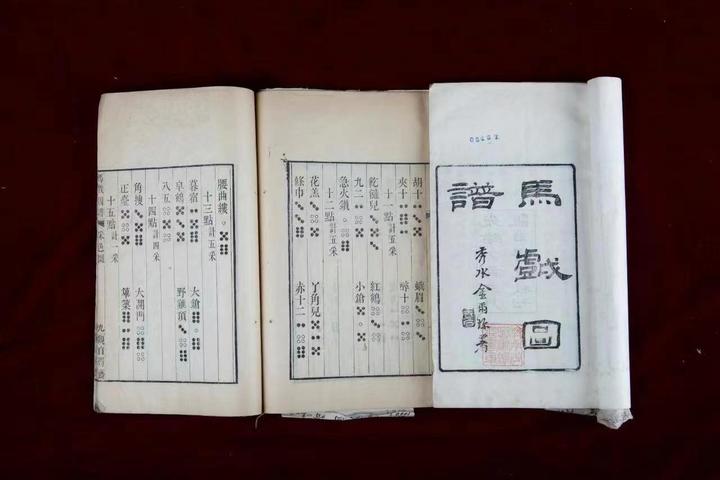 馬戲圖
譜
秀水金爾珍署
胡十 蛾眉
夾十 醉十
十一點計五采
紅鶴
九二 小鎗
十二點計五采
花羔 丫角兒
條巾 赤十二
腰曲縷
十三點計五采
暮宿 大鎗
皁鶴 野雞頂
八五
十四點計四采
大開門
正臺 篳篥
十五點計一采